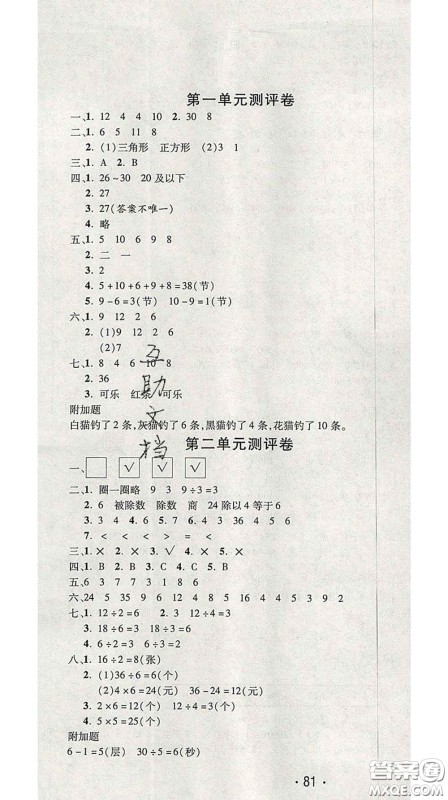 第一单元测评卷
一、1. 12 4 4 10 2. 30 8
二、1. 6 5 11 8
2. (1)三角形 正方形 (2)3 1
三、1. A 2. B
四、1. 26~30 20及以下
2. 27
3. 27(答案不唯一)
4. 略
五、1. 5 10 6 9 8
2. 二 一
3. 2
4. 5+10+6+9+8=38(节)
5. 9-6=3(节) 10-9=1(节)
六、1. 9 12 2 6
2. (1)9 12 2 6
(2)7
七、1. 4 8 6 10 8
2. 36
3. 可乐 红茶 可乐
附加题
白猫钓了2条,灰猫钓了6条,黑猫钓了4条,花猫钓了10条。
互助文档
第二单元测评卷
一、□ ☑ ☑ ☑
二、1. 圈一圈略 9 3 9÷3=3
2. 6 被除数 除数 商 24除以4等于6
3. 3 4 4 6 7 6 5
7. < < < > = <
三、1. × 2. × 3. √ 4. × 5. ×
四、1. B 2. C 3. A 4. C 5. B
五、6 3 7 7 1 3 8 6
六、24 5 35 9 6 16 4 4 5 36 5 3 9 2
七、1. 12÷2=6 2. 3 12÷4=3
3. 18÷6=3 18÷3=6
4. 6÷2=3 6÷3=2
八、1. 16÷2=8(张)
2. (1)36÷6=6(个)
(2)4×6=24(元) 36-24=12(元)
3. 2×6=12(个) 12÷3=4(个)
4. 5×4=20(个) 20÷5=4(个)
附加题
6-1=5(层) 30÷5=6(秒)
· 81 ·
答案圈
MXQE.COM